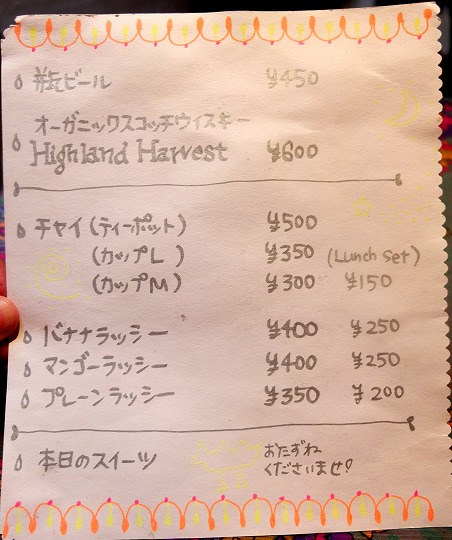 瓶ビール ¥450
オーガニックスコッチウイスキー
Highland Harvest ¥600
チャイ(ティーポット) ¥500
(カップL) ¥350 (Lunch set)
(カップM) ¥300 ¥150
バナナラッシー ¥400 ¥250
マンゴーラッシー ¥400 ¥250
プレーンラッシー ¥350 ¥200
本日のスイーツ おたずね
くださいませ!